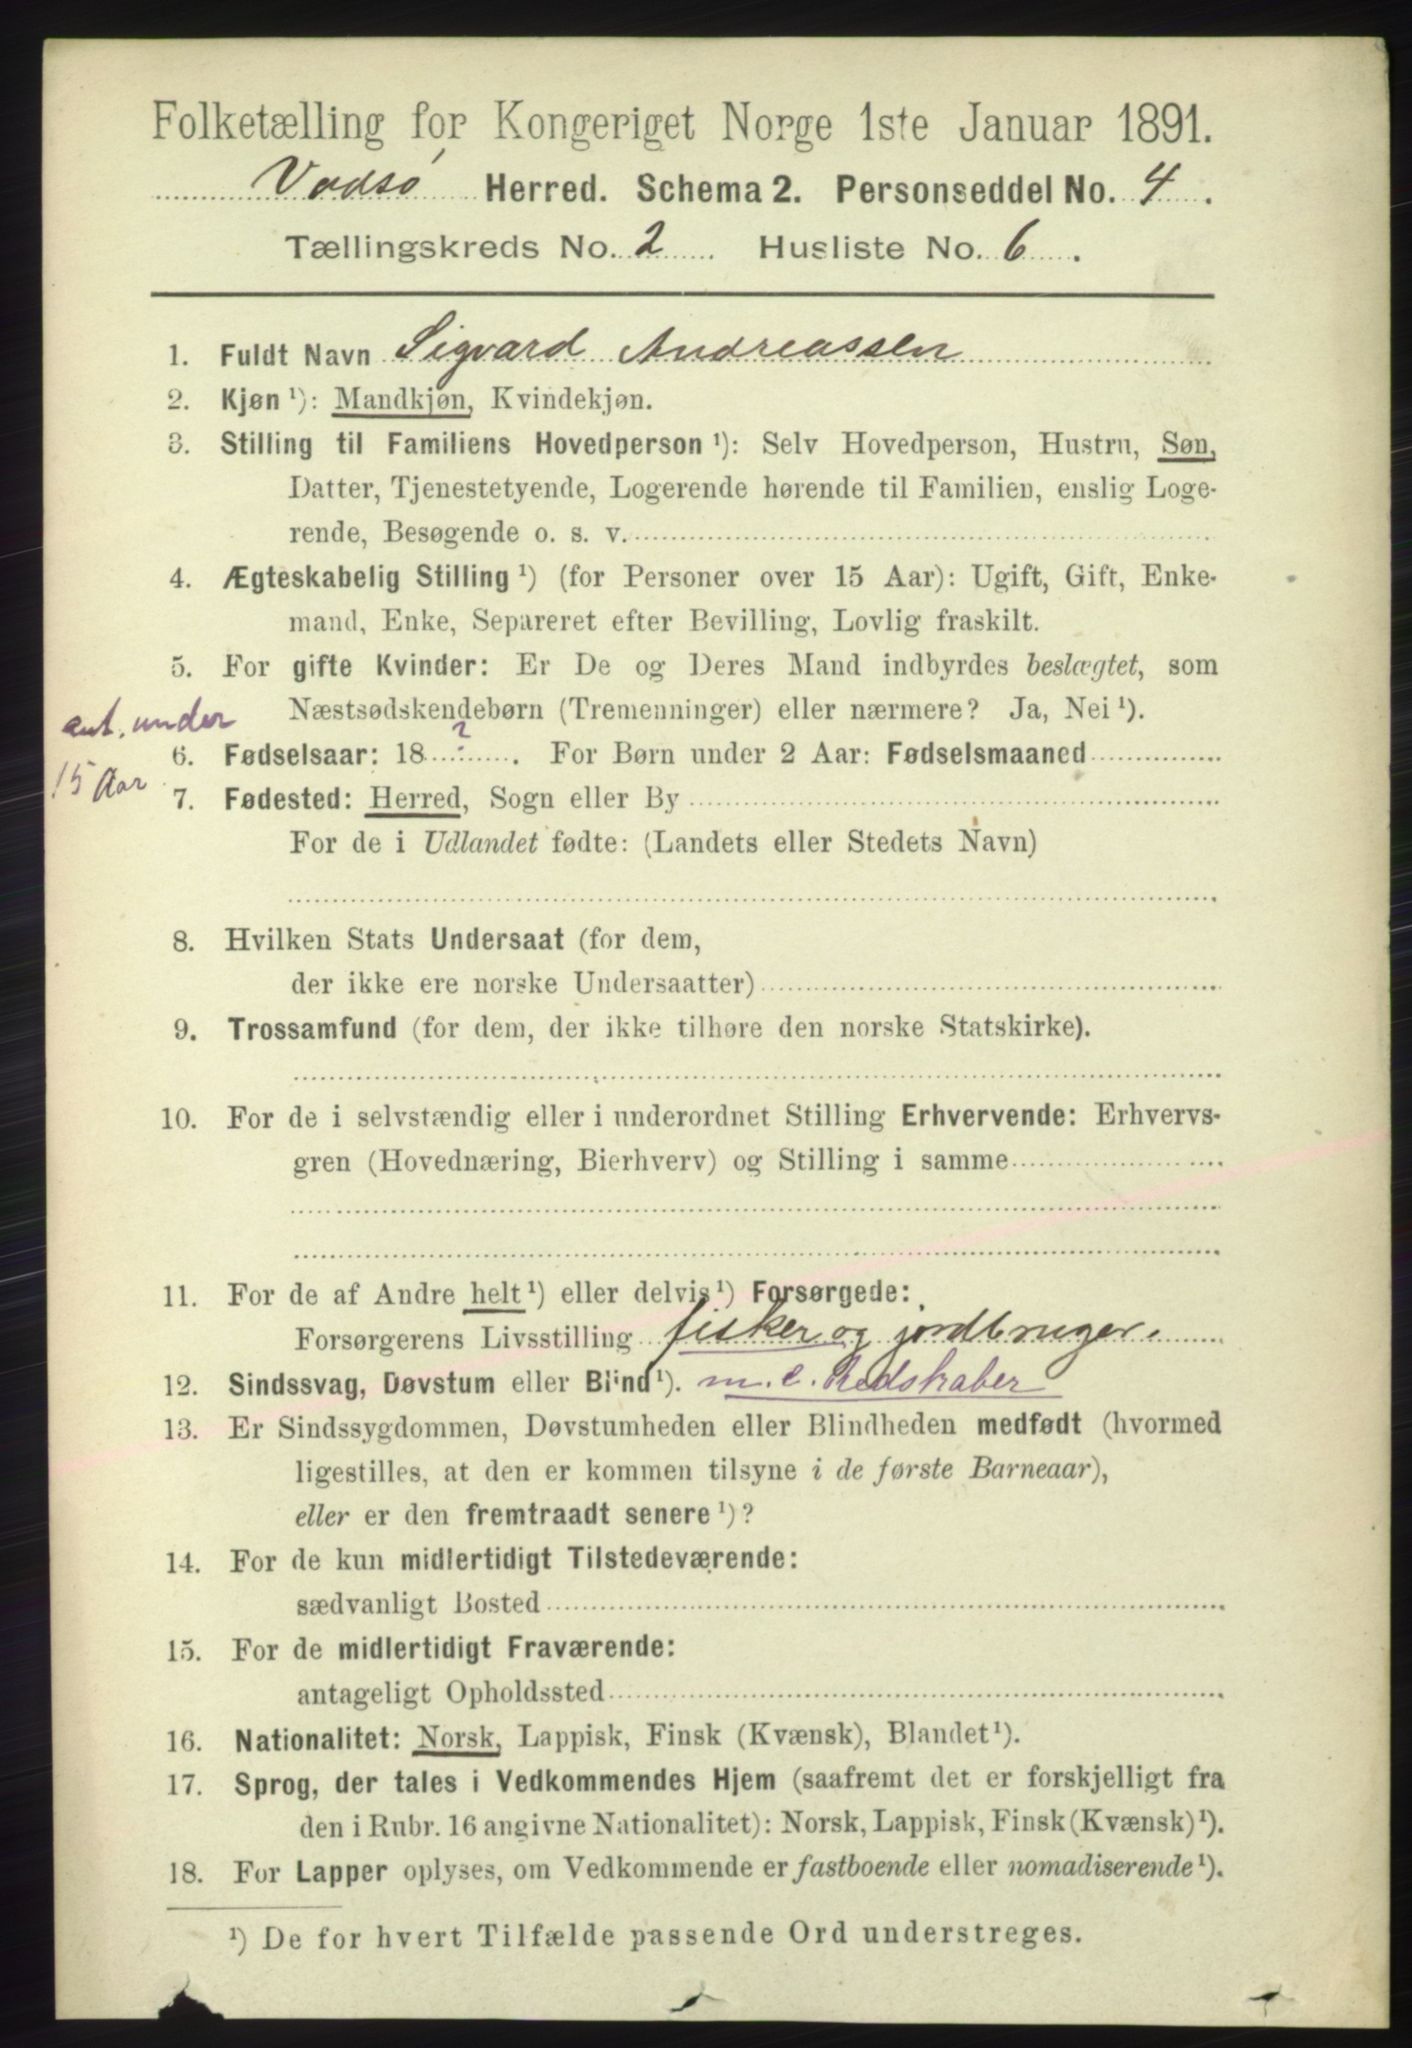 Folketælling for Kongeriget Norge 1ste Januar 1891.
Vadsø Herred. Schema 2. Personseddel No. 4.
Tællingskreds No. 2 Husliste No. 6.
1. Fuldt Navn Sigvard Andreassen
2. Kjøn ¹): Mandkjøn, Kvindekjøn.
3. Stilling til Familiens Hovedperson ¹): Selv Hovedperson, Hustru, Søn,
Datter, Tjenestetyende, Logerende hørende til Familien, enslig Loge-
rende, Besøgende o. s. v.
4. Ægteskabelig Stilling ¹) (for Personer over 15 Aar): Ugift, Gift, Enke-
mand, Enke, Separeret efter Bevilling, Lovlig fraskilt.
5. For gifte Kvinder: Er De og Deres Mand indbyrdes beslægtet, som
Næstsødskendebørn (Tremenninger) eller nærmere? Ja, Nei ¹).
ant. under
15 Aar
6. Fødselsaar: 18 ? . For Børn under 2 Aar: Fødselsmaaned
7. Fødested: Herred, Sogn eller By
For de i Udlandet fødte: (Landets eller Stedets Navn)
8. Hvilken Stats Undersaat (for dem,
der ikke ere norske Undersaatter)
9. Trossamfund (for dem, der ikke tilhøre den norske Statskirke).
10. For de i selvstændig eller i underordnet Stilling Erhvervende: Erhvervs-
gren (Hovednæring, Bierhverv) og Stilling i samme
11. For de af Andre helt ¹) eller delvis ¹) Forsørgede:
Forsørgerens Livsstilling fisker og jordbruger.
12. Sindssvag, Døvstum eller Blind ¹). m. e. Redskaber
13. Er Sindssygdommen, Døvstumheden eller Blindheden medfødt (hvormed
ligestilles, at den er kommen tilsyne i de første Barneaar),
eller er den fremtraadt senere ¹)?
14. For de kun midlertidigt Tilstedeværende:
sædvanligt Bosted
15. For de midlertidigt Fraværende:
antageligt Opholdssted
16. Nationalitet: Norsk, Lappisk, Finsk (Kvænsk), Blandet ¹).
17. Sprog, der tales i Vedkommendes Hjem (saafremt det er forskjelligt fra
den i Rubr. 16 angivne Nationalitet): Norsk, Lappisk, Finsk (Kvænsk) ¹).
18. For Lapper oplyses, om Vedkommende er fastboende eller nomadiserende ¹).
¹) De for hvert Tilfælde passende Ord understreges.